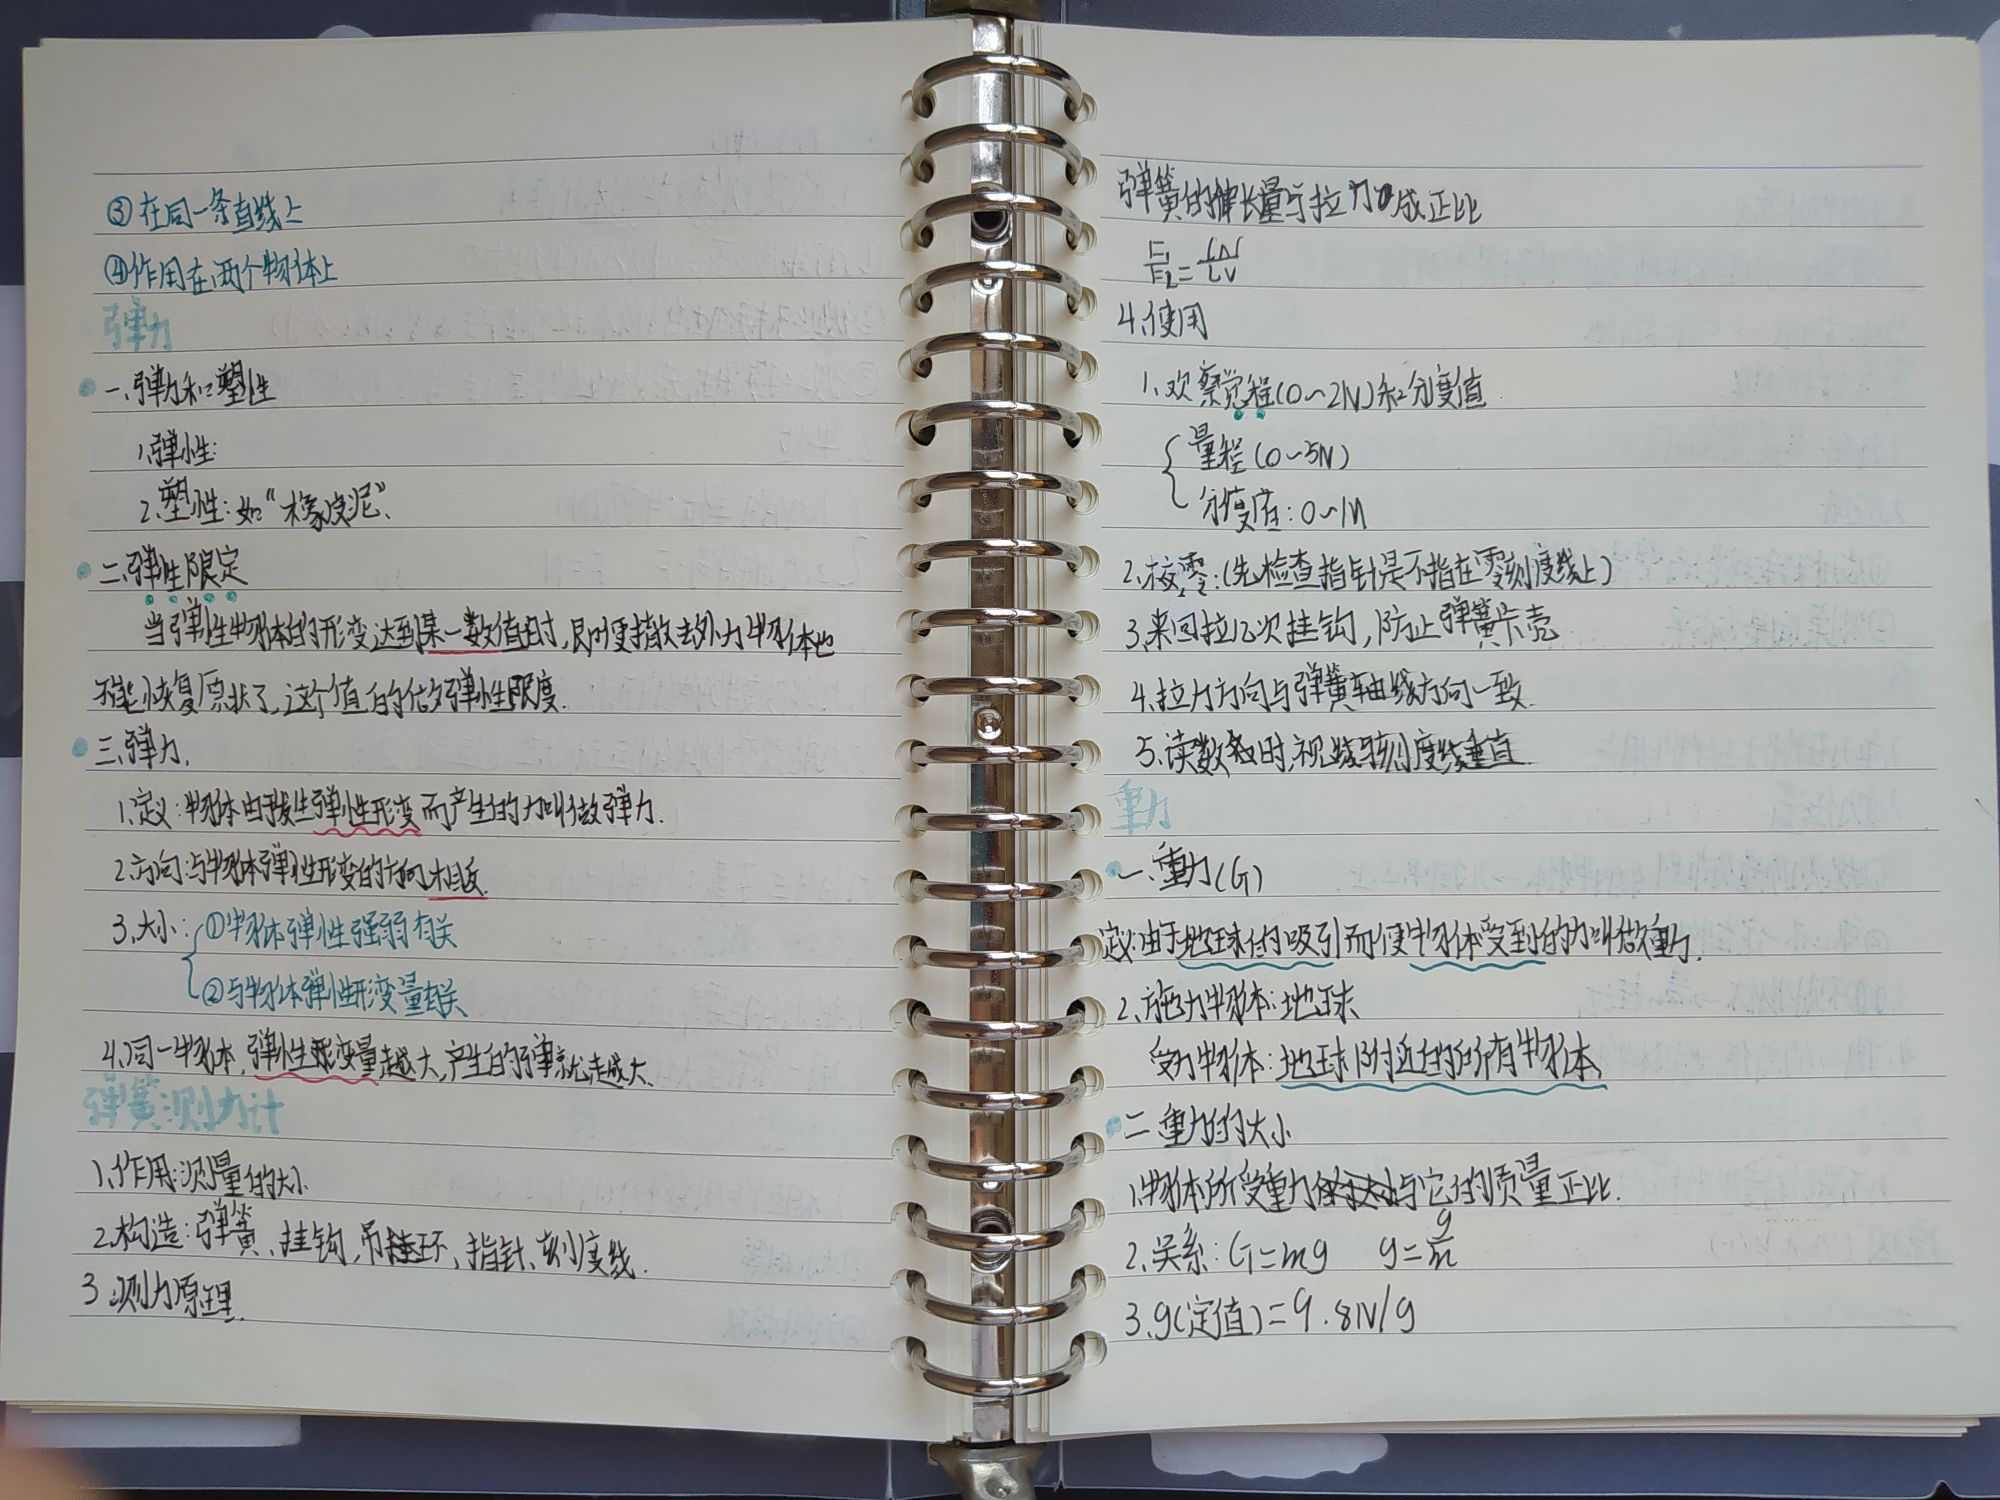 ③在同一条直线上
④作用在两个物体上
弹力
一.弹力和塑性
1.弹性:
2.塑性:如“橡皮泥”、
二.弹性限定
当弹性物体的形变达到某一数值时,即便撤去外力物体也
不能恢复原状了,这个值的估为弹性限度.
三.弹力.
1.定义:物体由于发生弹性形变而产生的力叫做弹力.
2.方向:与物体弹性形变的方向相反.
3.大小:①物体弹性强弱有关
②与物体弹性形变量有关
4.同一物体,弹性形变量越大,产生的弹就越大.
弹簧测力计
1.作用:测量的大小
2.构造:弹簧、挂钩,吊挂环、指针、刻度线.
3.测力原理.
弹簧的伸长量与拉力成正比
4.使用
1.观察量程(0~2N)和分度值
量程(0~5N)
分度值:0~1N
2.校零:(先检查指针是不指在零刻度线上)
3.来回拉几次挂钩,防止弹簧卡壳
4.拉力方向与弹簧轴线方向一致.
5.读数时,视线与刻度线垂直.
重力
一.重力(G)
定义:由于地球的吸引而使物体受到的力叫做重力.
2.施力物体:地球
受力物体:地球附近的所有物体
二.重力的大小
1.物体所受重力与它的质量正比.
2.关系:G=mg g=g/m
3.g(定值)=9.8N/g